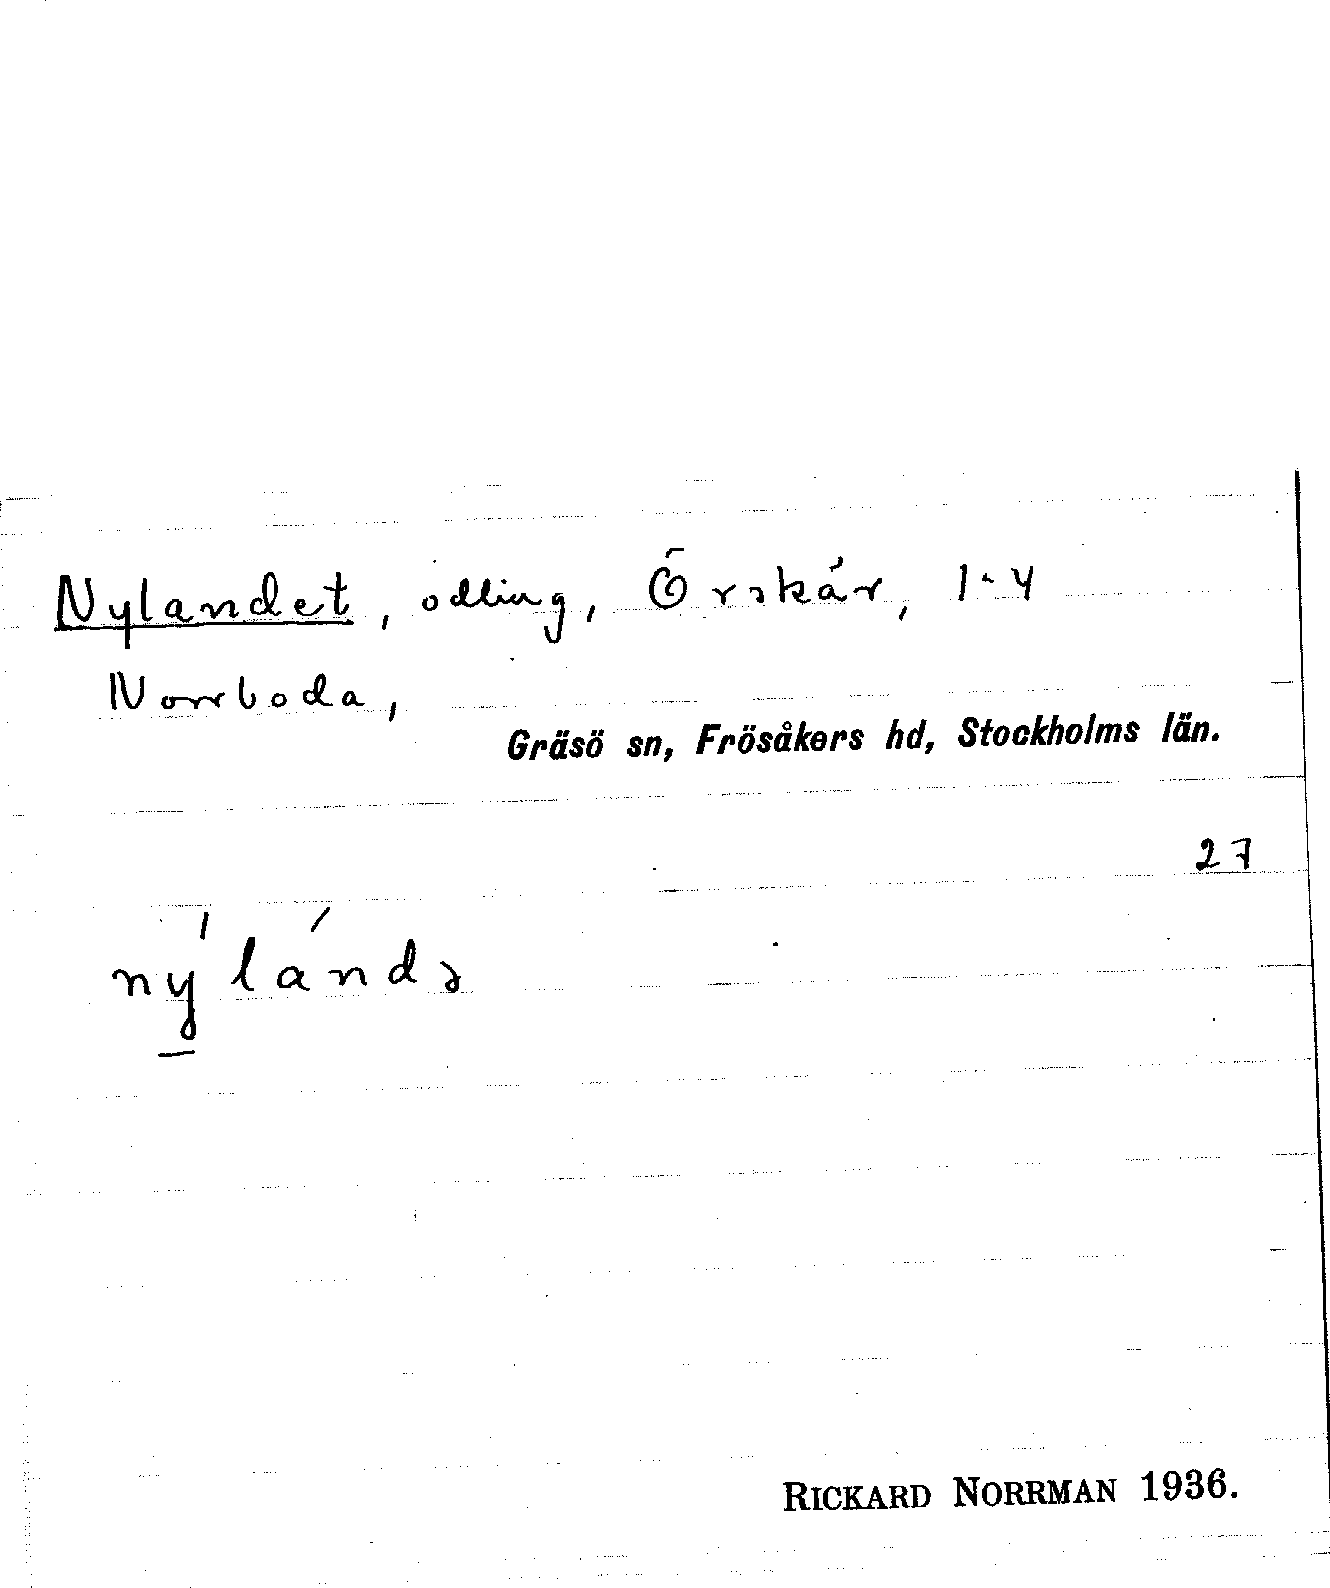 Nylandet, odling, Örskär, 1-4
Norrboda,
Gräsö sn, Frösåkers hd, Stockholms län.
27
RICKARD NORRMAN 1936.